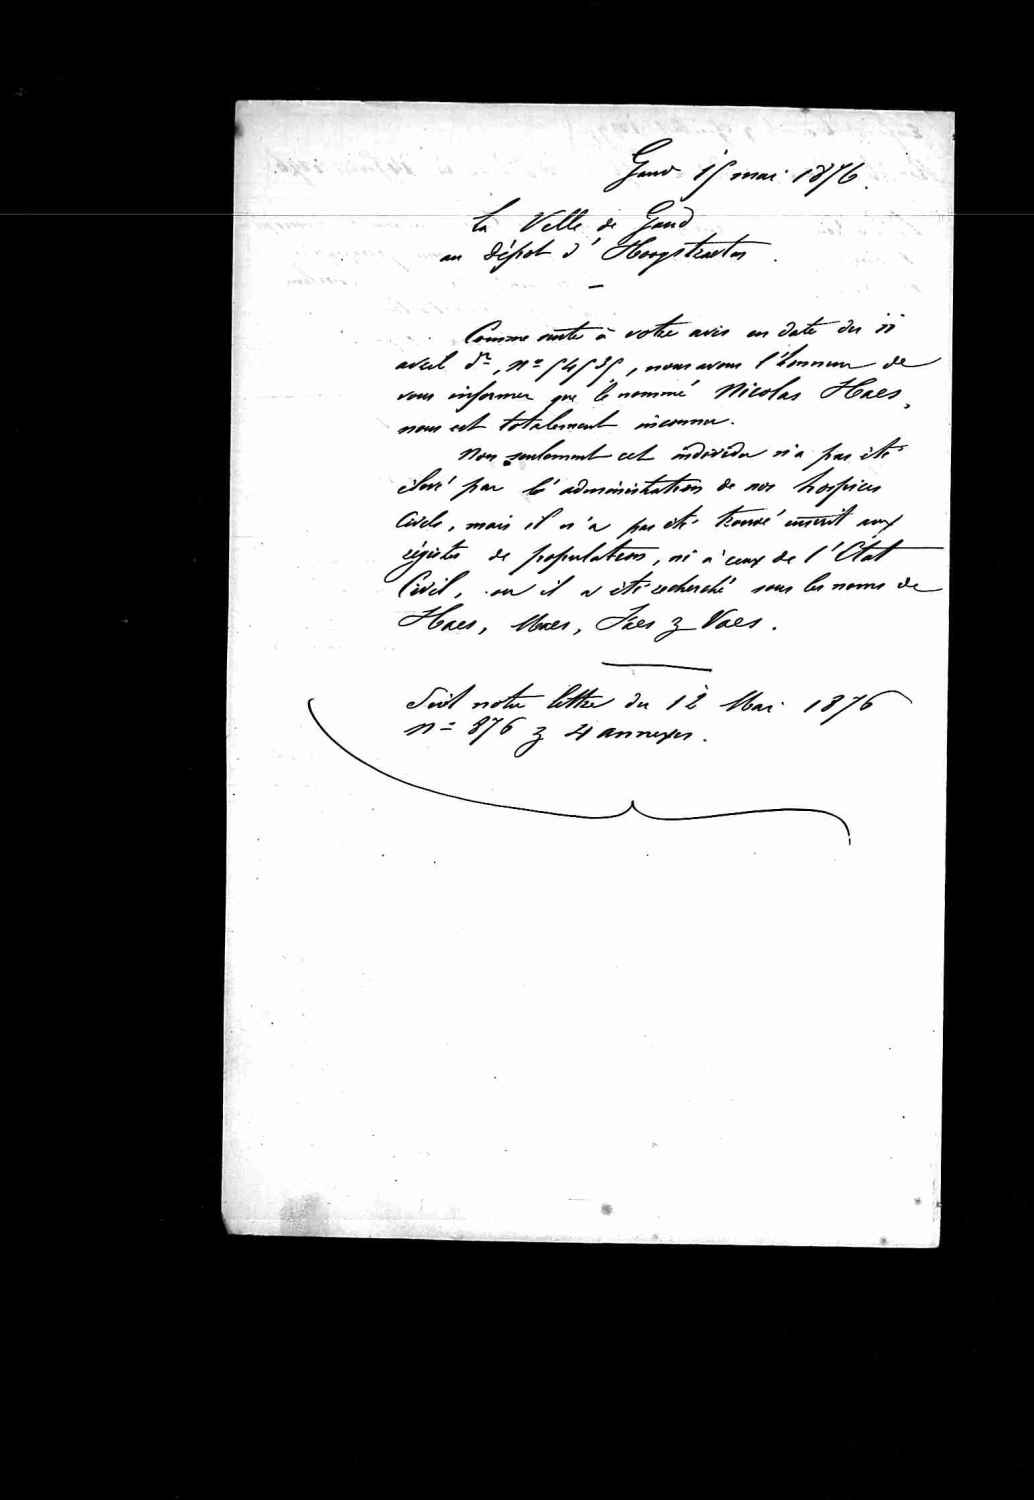 Gand 15 mai 1876.
La Ville de Gand
au dépot d'Hoogstraeten.
Comme suite à votre avis en date du 11
avril dr, no 54535, nous avons l'honneur de
vous informer que le nommé Nicolas Haes,
nous est totalement inconnu.
Non seulement cet individu n'a pas été
élevé par l'administration de nos hospices
Civils, mais il n'a pas été trouvé inscrit aux
régistres de population, ni à ceux de l'Etat
Civil, ou il a été recherché sous les noms de
Haes, Maes, Faes & Vaes.
Suit notre lettre du 12 Mai 1876
no 876 & 4 annexes.